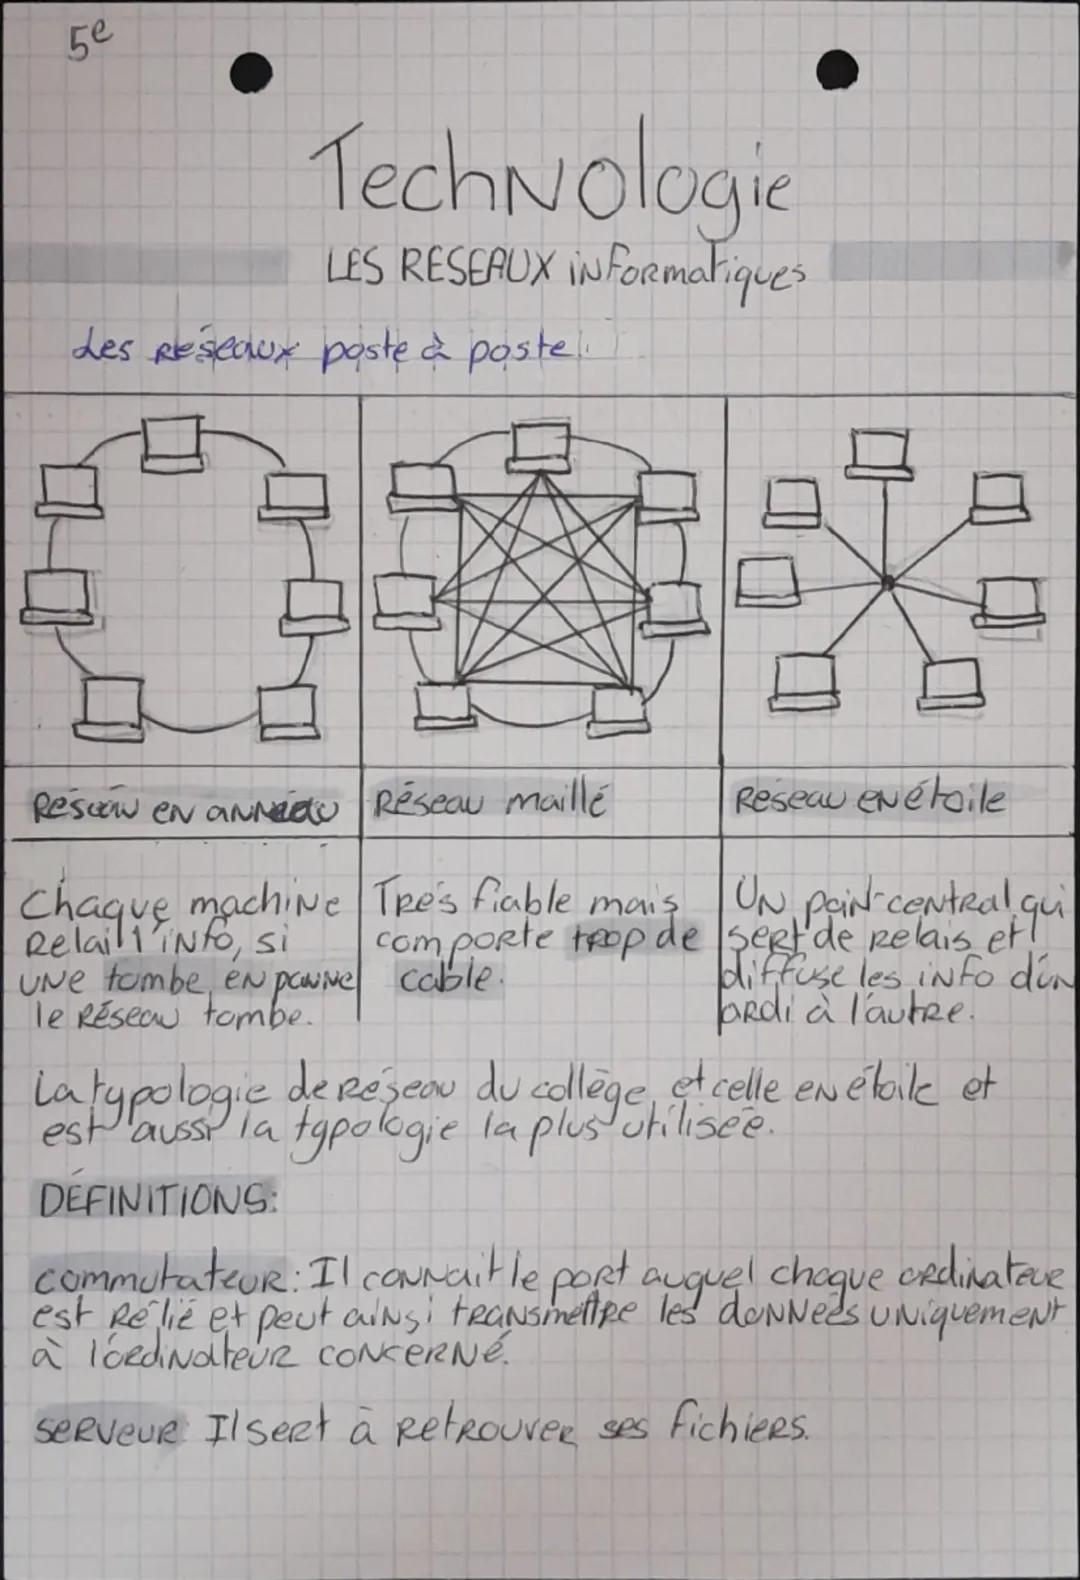 5e
Technologie
LES RESEAUX informatiques
Les réseaux poste à poste.
Réseau en anneau
Réseau maillé
Reseau en étoile
Chaque machine
relait l'info, si
une tombe en panne
le réseau tombe.
Très fiable mais
comporte trop de
cable.
Un point central qui
sert de relais et
diffuse les info d'un
ordi à l'autre.
La typologie de réseau du collège, et celle en étoile et
est aussi la typologie la plus utilisée.
DÉFINITIONS:
commutateur: Il connait le port auquel chaque ordinateur
est rélié et peut ainsi transmettre les données uniquement
à l'ordinateur concerné.
serveur: Il sert à retrouver ses fichiers.